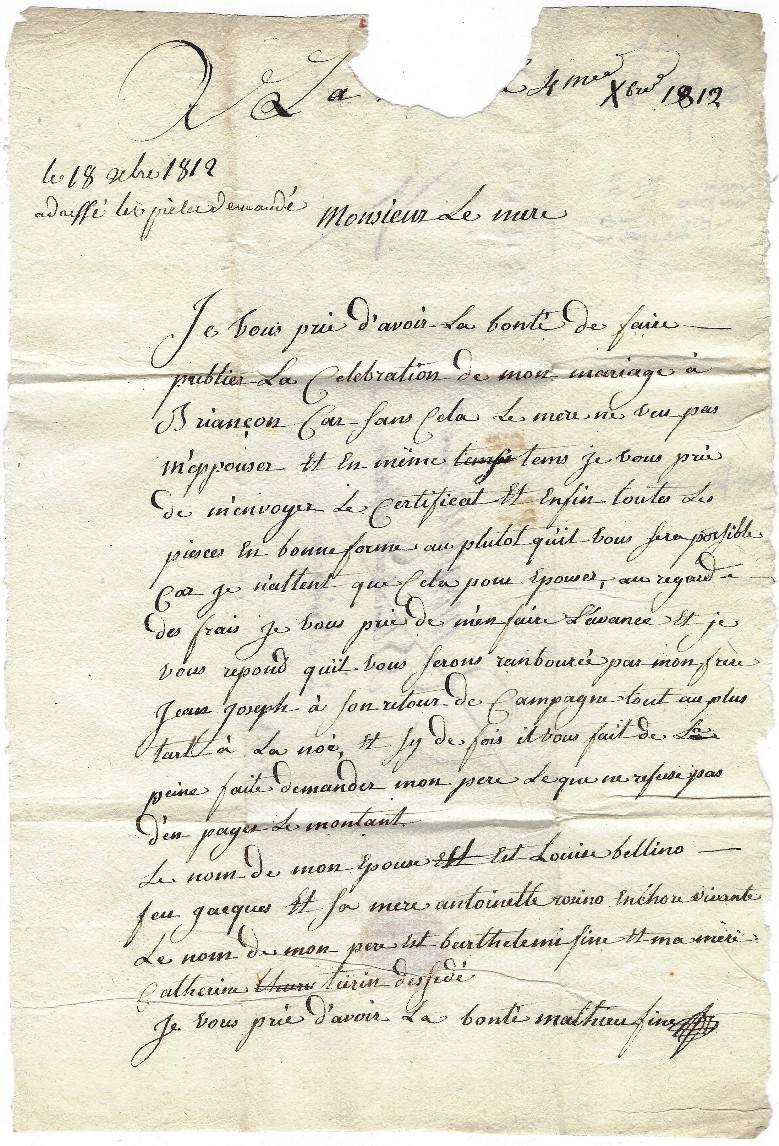 La 4me Xbre 1812
le 18 xbre 1812
adressé les pièces demandé
Monsieur Le mere
Je vous prie d'avoir La bonté de faire
publier La Celebration de mon mariage à
Briançon Car sans Cela Le mere ne veu pas
m'eppouser Et En même temps tems je vous prie
de m'envoyer Le Certificat Et Enfin toutes Les
piesces En bonne forme au plutot qu'il vous sera possible
Car je n'attent que Cela pour Epouser, au regard
des frais je vous prie de m'en faire L'avance Et je
vous repond qu'il vous serons rambourcé par mon frere
Jean Joseph à son retour de Campagne tout au plus
tart à La noè, Et sy de fois il vous fait de La
peine faite demander mon pere Le que ne refuse pas
d'en payer Le montant
Le nom de mon Epouse Est Est Louise bellino
feu jacques Et sa mere antoinette rosino Enchore vivante
Le nom de mon pere Est barthelemi fine Et ma mere
Catherine turin dessedé
Je vous prie d'avoir La bonté mathieu fine